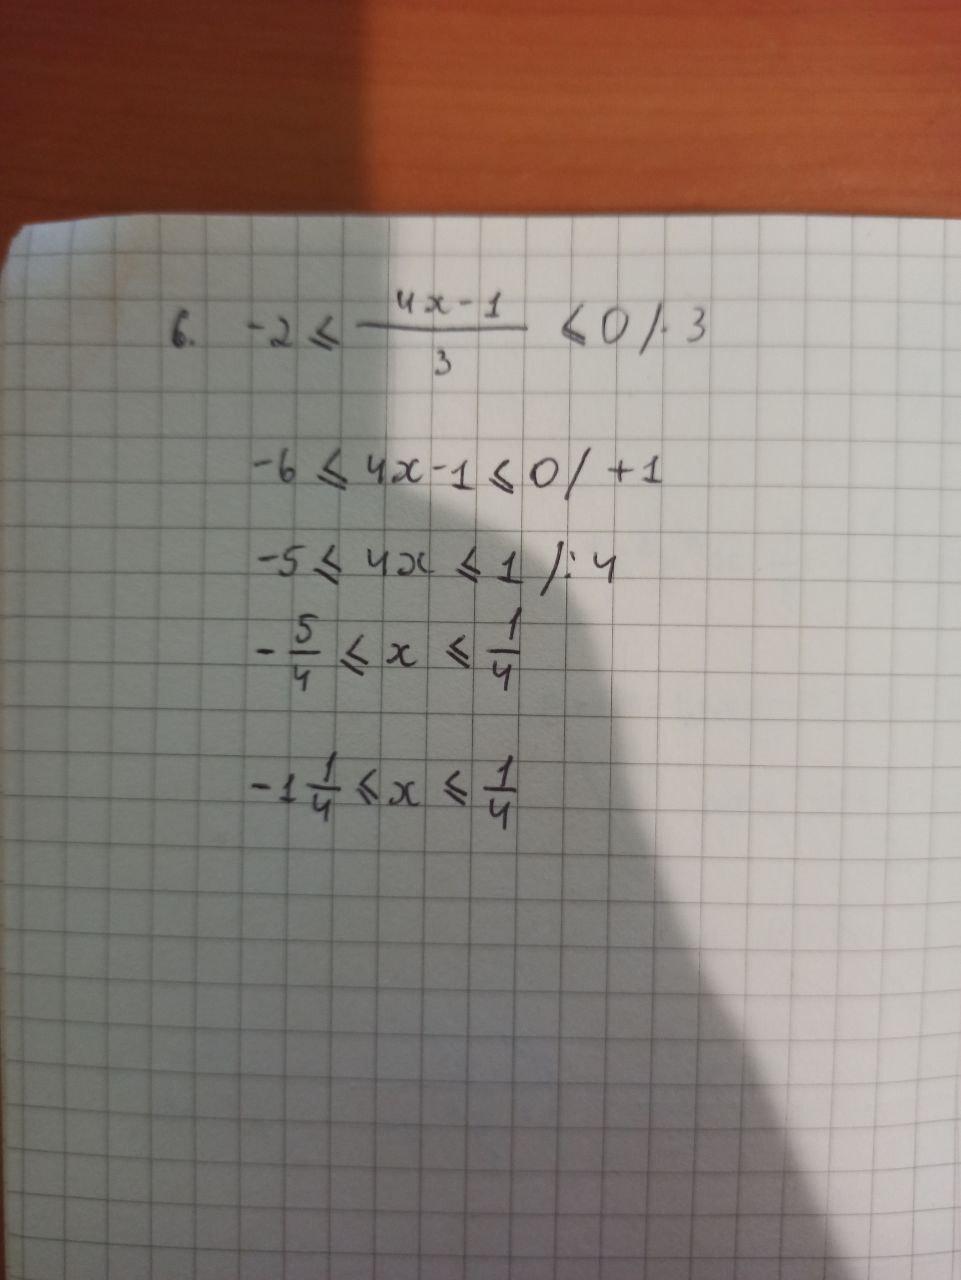 6. -2 ⩽ \frac{4x-1}{3} ⩽ 0 /· 3
-6 ⩽ 4x-1 ⩽ 0 / +1
-5 ⩽ 4x ⩽ 1 /: 4
-\frac{5}{4} ⩽ x ⩽ \frac{1}{4}
-1\frac{1}{4} ⩽ x ⩽ \frac{1}{4}